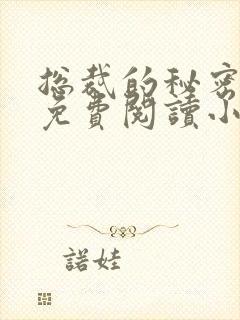 总裁的秘密
免費閱讀小
諾娃